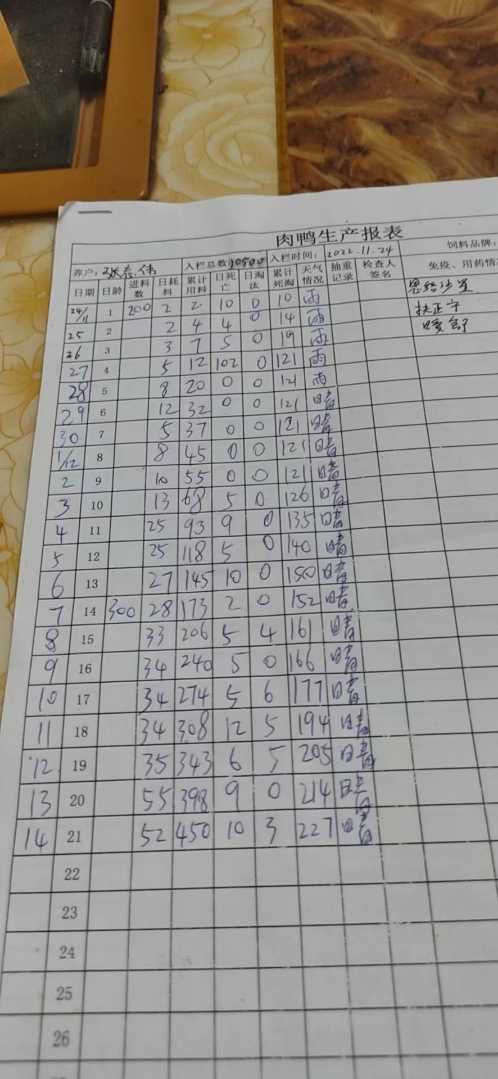 肉鸭生产报表
养户: 入栏总数 10500 入栏时间: 2022.11.24 饲料品牌:
日期 日龄 进料数 日耗料 累计用料 日死亡 日淘汰 累计死淘 天气情况 抽重记录 检查人签名 免疫、用药情
24/11 1 200 2 2 10 0 10 雨
25 2 2 4 4 0 14 雨 扶正
26 3 3 7 5 0 19 雨
27 4 5 12 102 0 121 雨
28 5 8 20 0 0 121 雨
29 6 12 32 0 0 121 晴
30 7 5 37 0 0 121 晴
1/12 8 8 45 0 0 121 晴
2 9 10 55 0 0 121 晴
3 10 13 68 5 0 126 晴
4 11 25 93 9 0 135 晴
5 12 25 118 5 0 140 晴
6 13 27 145 10 0 150 晴
7 14 300 28 173 2 0 152 晴
8 15 33 206 5 4 161 晴
9 16 34 240 5 0 166 晴
10 17 34 274 5 6 177 晴
11 18 34 308 12 5 194 晴
12 19 35 343 6 5 205 晴
13 20 55 398 9 0 214 晴
14 21 52 450 10 3 227 晴
22
23
24
25
26